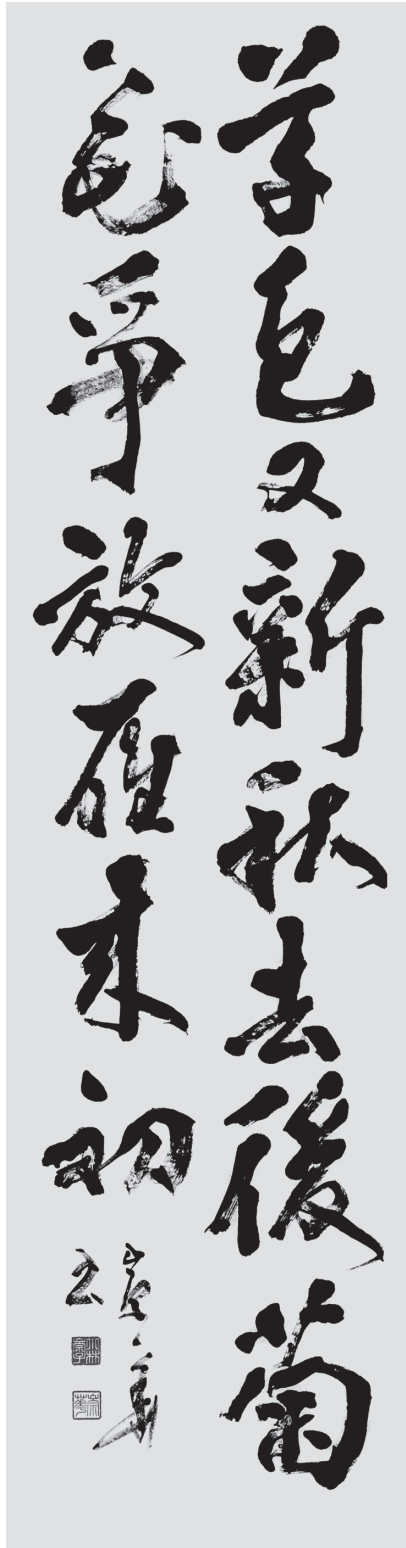 草色又新秋去後菊
花爭放雁來初
書